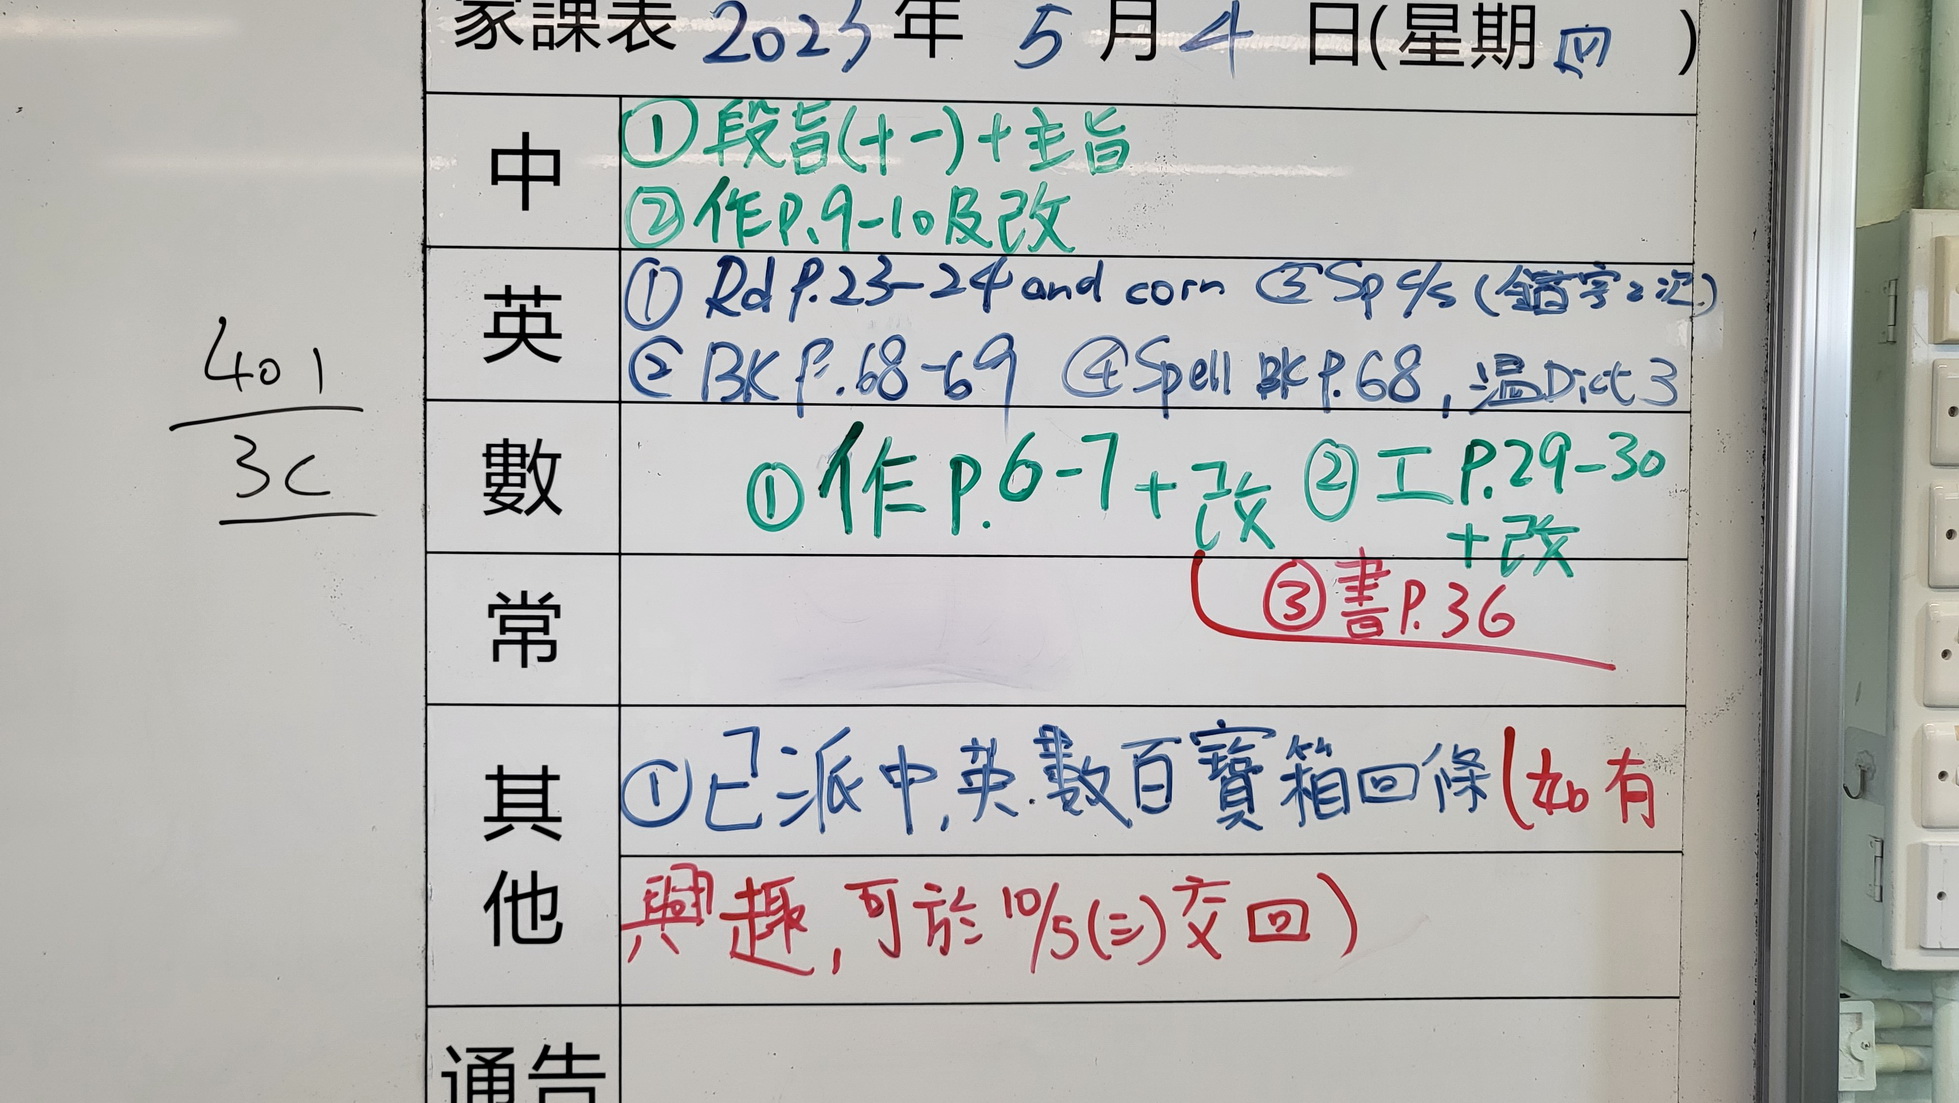 家課表 2023年 5月 4日(星期四)
401
3C
中
①段旨(十一)+主旨
②作P.9-10及改
英
① Rd P.23-24 and corn ③Sp c/s (錯字2次)
② BK P.68-69 ④Spell BK P.68, 温Dict 3
數
①作P.6-7+改 ②工P.29-30
+改
常
③書P.36
其他
①已派中,英.數百寶箱回條(如有
興趣,可於10/5(三)交回)
通告